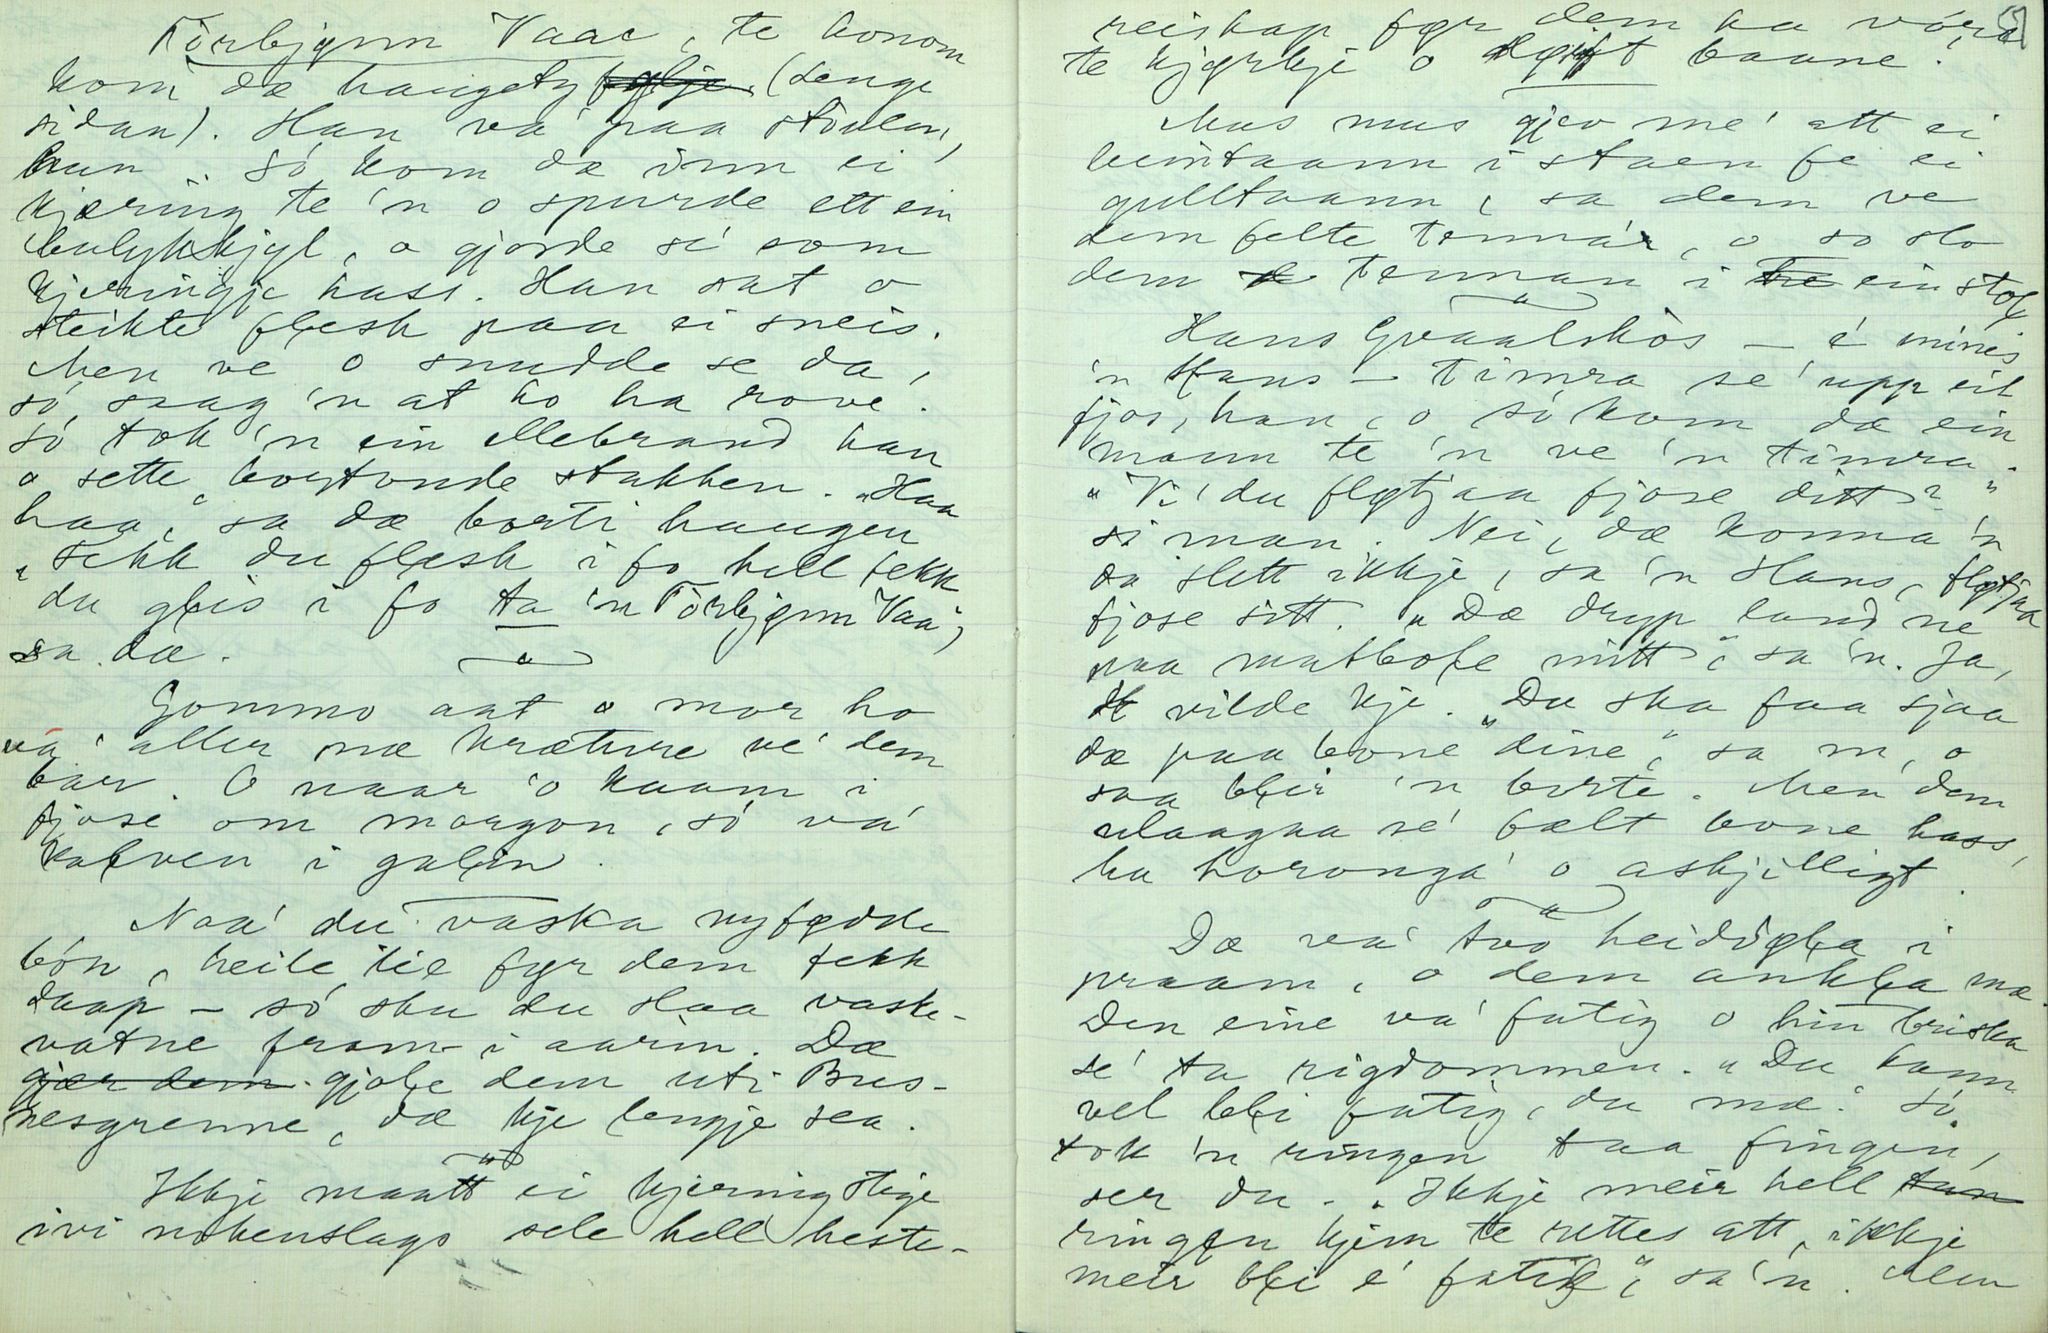 Tørbjønn Vaae, te honom
kom dæ haugety følje (lenge
sidan). Han va' paa stòulen,
han. Só kom dæ inn ei
kjæring te 'n o spurde ett ein
bulykskjyl, o gjorde sé som
kjeringje hass. Han sat o
steikte flesk paa ei sneis.
Men ve o snudde se da,
só saag 'n at ho ha rove.
Só tok 'n ein ellebrand han
o sette bortonde stakken. "Haa
haa," sa dæ borti haugen
"fekk du flesk i fo hell fekk
du gleis i fo ta 'n Tørbjønn Vaa",
sa dæ.
Gommo aat o mor ho
va' aller mæ kræture ve' dem
bar. O naar 'o kaam i
fjose om morgon, só va'
kalven i galin.
Naa' du vaska nyfødde
bón, heile tie fyr dem fekk
daap - só sku du slaa vaske-
vatne fram i aarin. Dæ
gjær dem gjole dem uti Bus-
nesgrenne, dæ kje lengje sea.
Ikkje maatt ei kjering stige
ivi nokenslags sele hell heste-
reiskap fyr dem ha vóre
te kjørkje o døift baane.
Mus mus gjev me' att ei
beintaann i staen fe ei
gulltaann, sa dem ve
dem felte tennar, o so slo
dem tennan i ein stol
Hans Gvaalskòs - é minnes
'n Hans - timra se' upp eit
fjos, han, o só kom dæ ein
mann te 'n ve 'n timra.
"Vi' du fløtjaa fjose ditt?"
si man. Nei, dæ konna 'n
da slett ikkje, sa 'n Hans, fløtjaa
fjose sitt. "Dæ dryp land ne
paa matbole mitt", sa 'n. Ja,
vilde kje. "Du ska faa sjaa
dæ paa bone dine", sa 'n, o
saa blir 'n borte. Men dem
ulaagaa se' fælt bone hass,
ha horonga' o askjilligt.
Dæ va' tvo heidøla i
praam, o dem ankla mæ.
Den eine va' fatig o hin briska
sé ta rigdommen. "Du kann
vel bli fatig, du mæ." Só
tok 'n ringen taa fingen,
ser du. "Ikkje meir hell
ringen kjem te rettes att, ikkje
meir bli é fatig", sa 'n. Men